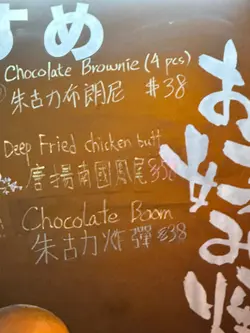 すめ
Chocolate Brownie (4 pcs)
朱古力布朗尼 $38
Deep Fried chicken butt
唐揚南國鳳尾 $38
Chocolate Boom
朱古力炸彈 $38
お好み焼